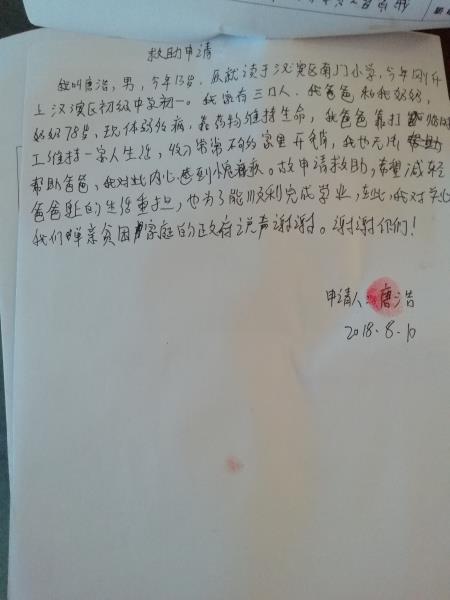 救助申请
我叫唐浩，男，今年13岁，原就读于汉滨区南门小学，今年刚升
上汉滨区初级中文初一。我家有三口人，我爸爸和我奶奶，
奶奶78岁，现体弱多病，靠药物维持生命，我爸爸靠打
工维持一家人生活，收入常常不够家里开销，我也无法
帮助爸爸，我对此内心感到愧疚。故申请救助，希望减轻
爸爸身上的生活重担，也为了能顺利完成学业，在此，我对关心
我们单亲贫困家庭的政府说声谢谢。谢谢你们！
申请人：唐浩
2018-8-10